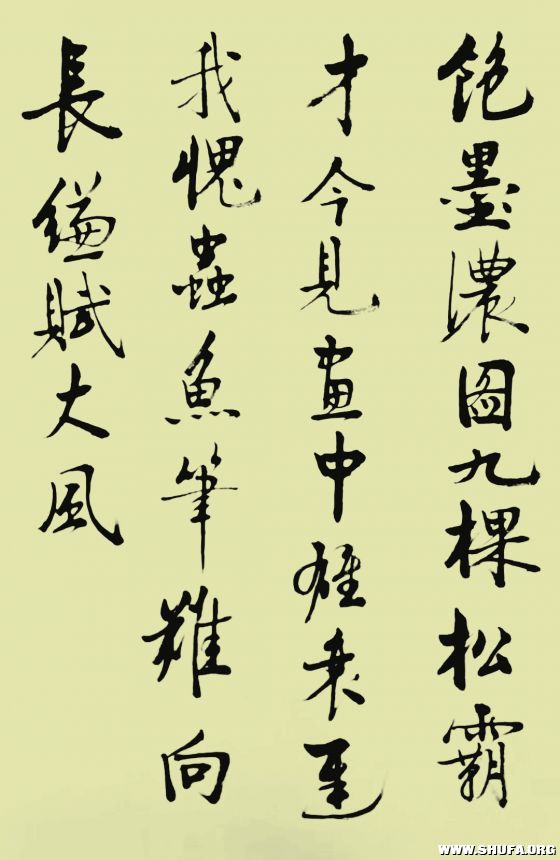 飽墨濃圖九棵松霸
才今見畫中雄衰遲
我愧蟲魚筆難向
長縑賦大風
WWW.SHUFA.ORG